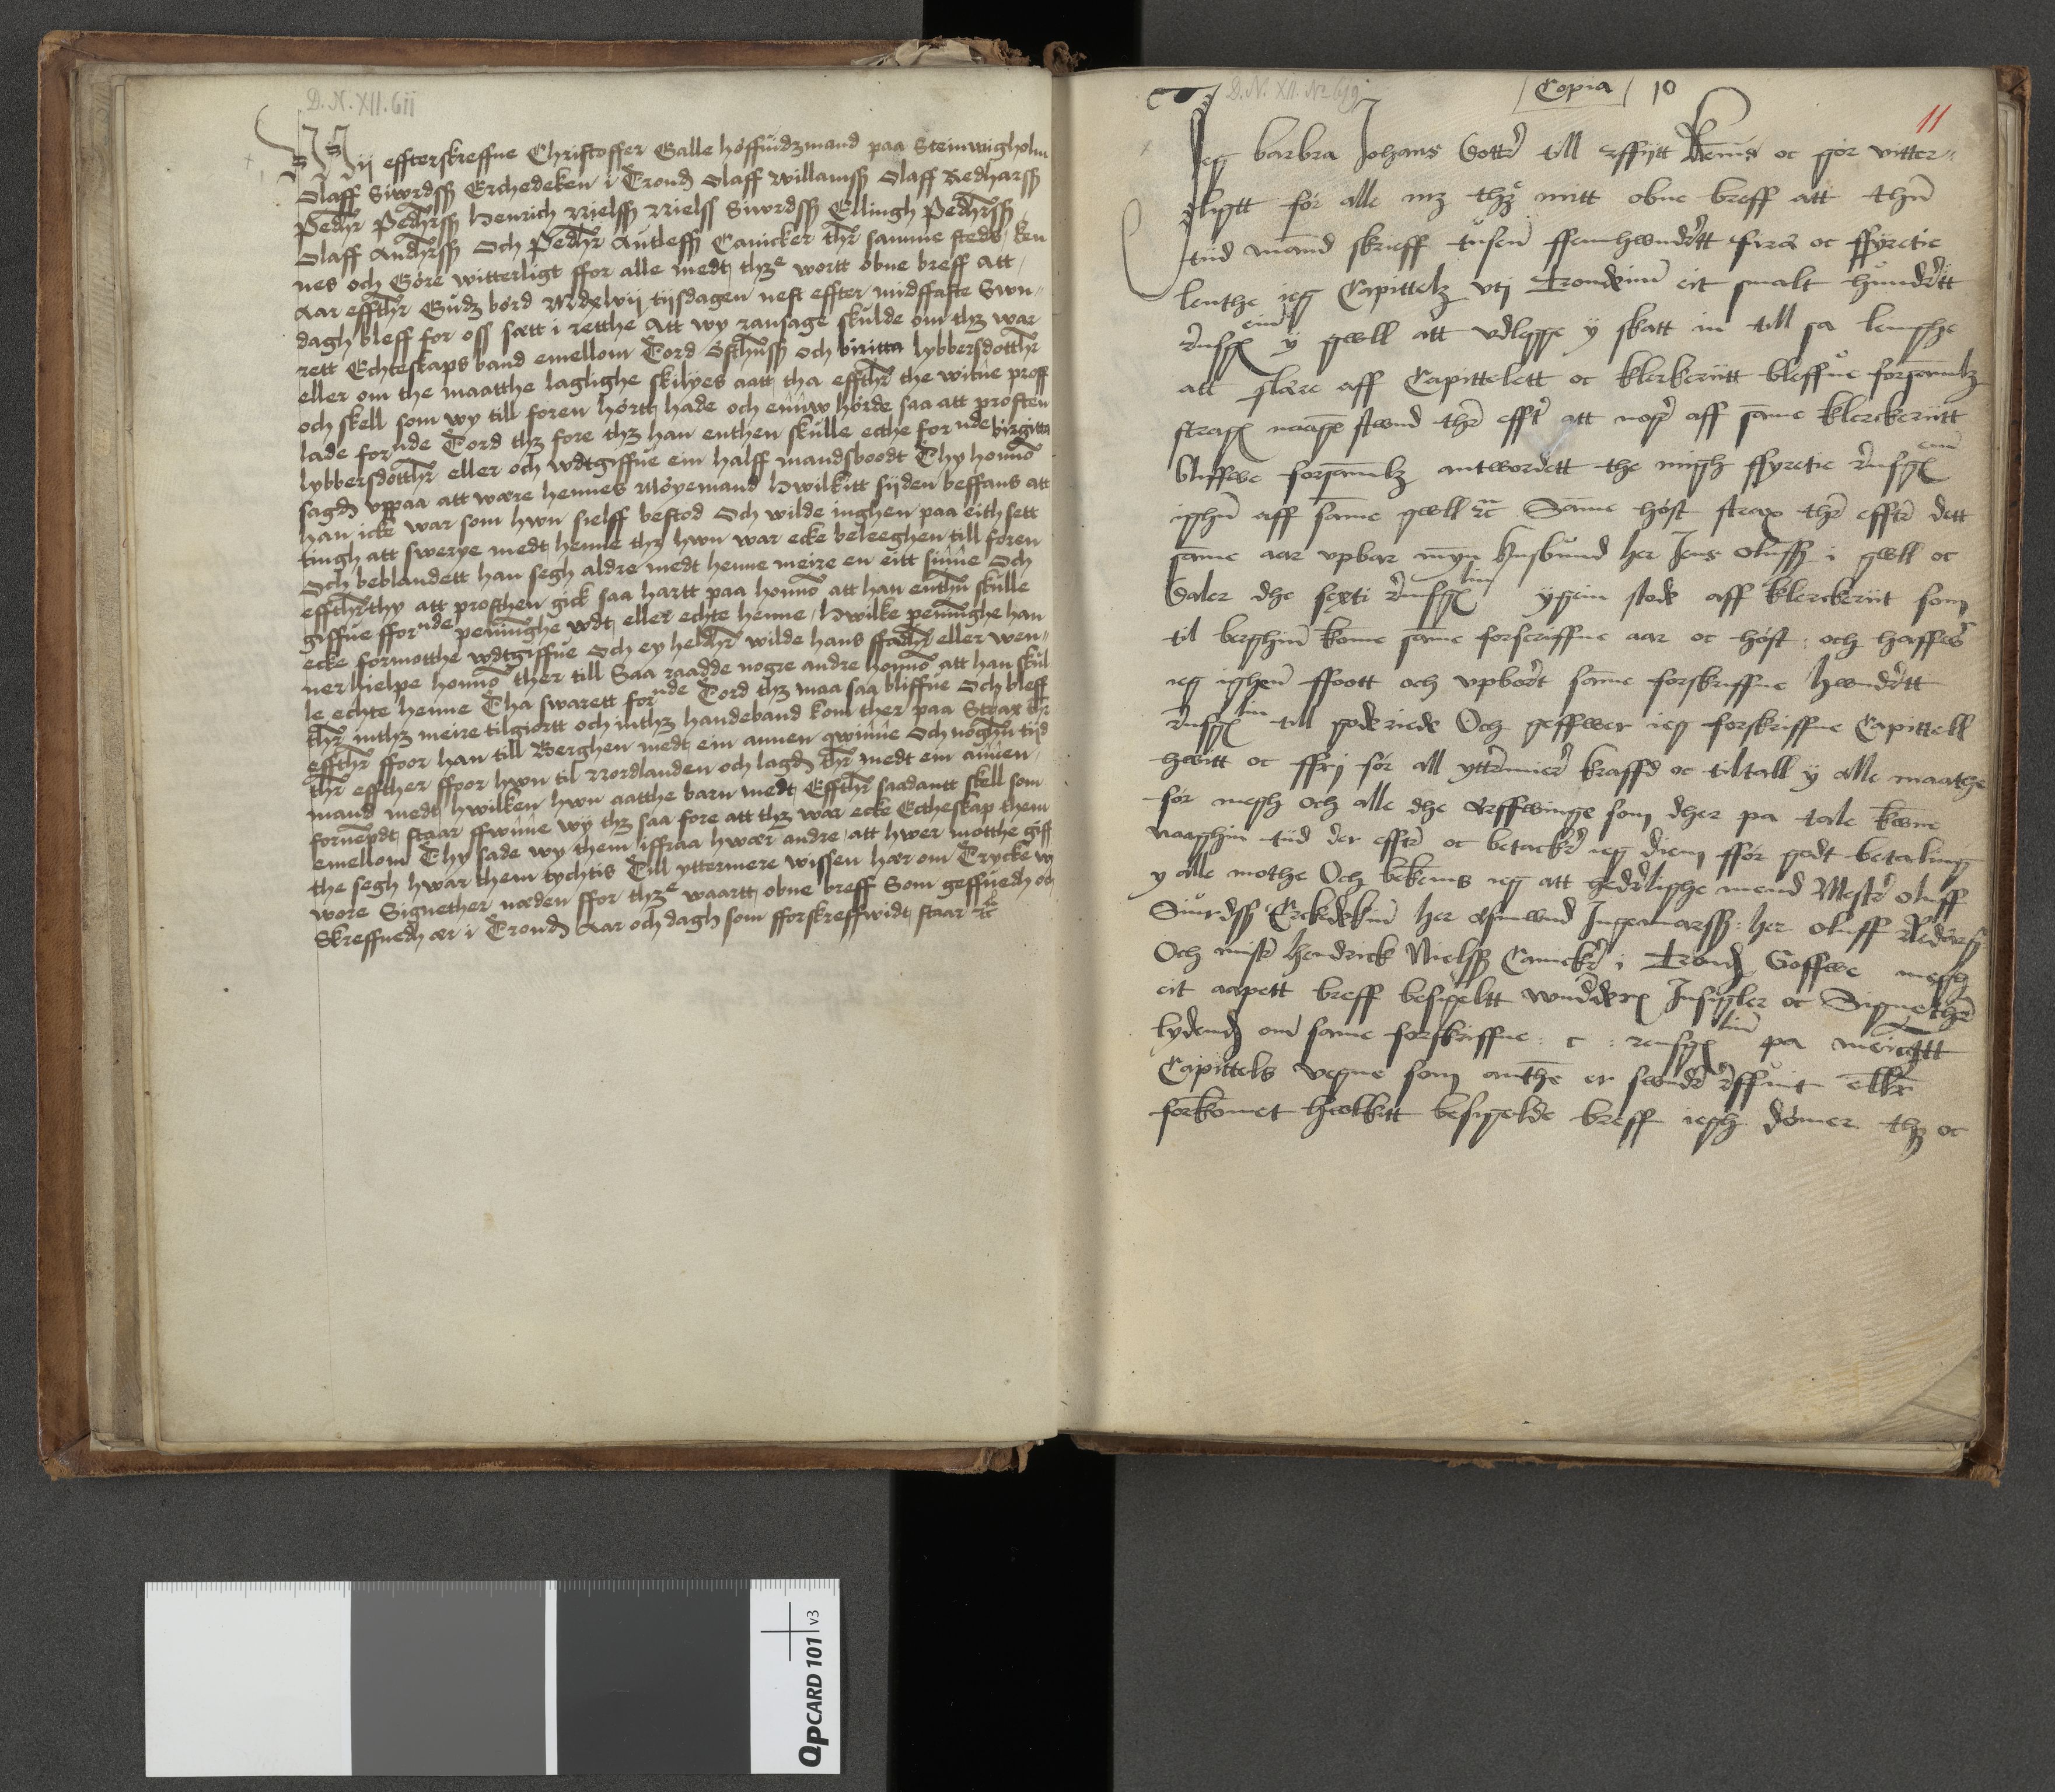 D. N. XII. 611
Wij effterskreffne Christoffer Galle höffuidzmand paa Steinwigholm
Olaff Siwrdssß Erchedeken i Trondh Olaff Willamssß Olaff Redharssß
Pedhr Pedhrssß Henrich Nielssß Nielss Siwrdssß Ellingh Pedhrssß
Olaff Andhrssß Och Pedhr Autleffß Canicker thr samme stedz ken
nes och Göre witterligt ffor alle medt thzᵉ wortt obne breff Att
Aar effthr Gudz bord Mdxlvij tijsdagen nest effter midffaste Swn„
dagh bleff for oss sætt i retthe Att wy ransage skulde om thz war
rett Echteskaps band emellom Tord östhussß och biritta lybbersdotthr
eller om the maatthe laglighe skilyes aatt tha effthr the witne proff
och skell som wy till foren hörtt hade och ennw hörde saa att prosten
lade forⁿᵈᵉ Tord thz fore thz han enthen skulle ecthe forⁿᵈᵉ birgitta
lybbersdotthr eller och wdtgiffue ein halff mandsboodt Thy honno
sagdh vppaa att wære hennes Möyemand Hwilkitt sijden beffans att
han icke war som hwn sielff bestod Och wilde inghen paa eith sett
tingh att swerye medt henne thz hwn war ecke beleeghen till foren
Och beblandett han segh aldre medt henne meire en eitt sinne Och
effthrthy att prosthen gick saa hartt paa honno att han enthn skulle
giffue fforⁿᵈᵉ penninghe wdt eller echte henne / Hwilke penninghe han
ecke formotthe wdtgiffue Och ey heldhr wilde hans ffadhr eller wen„
ner hielpe honno ther till Saa raadde nogre andre honno att han skul
le echte henne Tha swarett forⁿᵈᵉ Tord thz maa saa bliffue Och bleff
thr inthz meire tilgiortt och inthz handeband kom ther paa Strax thr
effthr ffoor han till Berghen medt ein annen qwinne Och noghn tijd
thr effther ffoor hwn til Nordlanden och lagdh thr medt ein annen
mand medt hwilken hwn aatthe barn medt Effthr saadantt skell som
fornempdt staar ffwnne wij thz saa fore att thz war ecke Ectheskap them
emellom Thy sade wy them iffraa hwær andre att hwer motthe giff
the segh hwar them tychtis Till yttermere wissen hær om Trycke wy
wore Signether næden ffor thzᵉ waartt obne breff Som geffuedh och
Skreffuedh ær i Trondh Aar och dagh som fforskreffwidt staar ⁊c̃
D. N. XII. No 619
Copia
10
11
Jeg barbra Johans dottr till erffijtt kenns oc gör vitter„
ligtt för alle mz thzᵉ mitt obne breff att thn
tiid mand skrieff tusen ffemhwndrtt fira oc ffyretie
lenthe ieg Capittelz vti Trondeim eit smalt hundrtt
rinsgˢ ÿ gwll att vdlegge ÿ skatt in till sa lenghe
att flære aff Capittelett oc klerkeriitt bleffue forsamlz
strags naage stwnd thr efftr att nogr aff same klerckeriitt
bliffwe forsamlz antwordett the migh ffyretie rinsgˢ
ighn aff same gwll ⁊c̃ Same höst strax thr efftr dett
same aar vpbar myn husbund her Jens oluffß i gwll oc
daler dhe sexti rinsgˢ ÿgein stode aff klerckeriit som
til berghin kome same forscriffne aar oc höst : och haffwr
ieg ighen ffoott och vpbort same forskriffne hwndrtt
rinsgˢ till gode riede Och geffwer ieg forskriffne Capittell
hwitt oc ffrij för all yttrmier kraffd oc tiltall ÿ alle maathe
för megh och alle dhe Arffwinge som dher pa tale kwne
naaghin tiid der efftr oc betackr ieg diem fför godt betaling
y alle mothe Och bekens ieg att hedrlighe mend Mestr oluff
Siurdsß Erckdekin her Asmwnd Ingeamarsß : her oluff Redarsß
Och mstr Hendrick Nielsß Canickr i Trondh Goffwe megh
eit aapett breff besigeltt wnderders Insigler oc Signethr
lydendh om same forskriffne : c : rensgˢ pa meinigtt
Capittels vegne som anthe er swndr rffuit ellr
forkomet hwilkitt besigelde breff iegh dömer thz oc